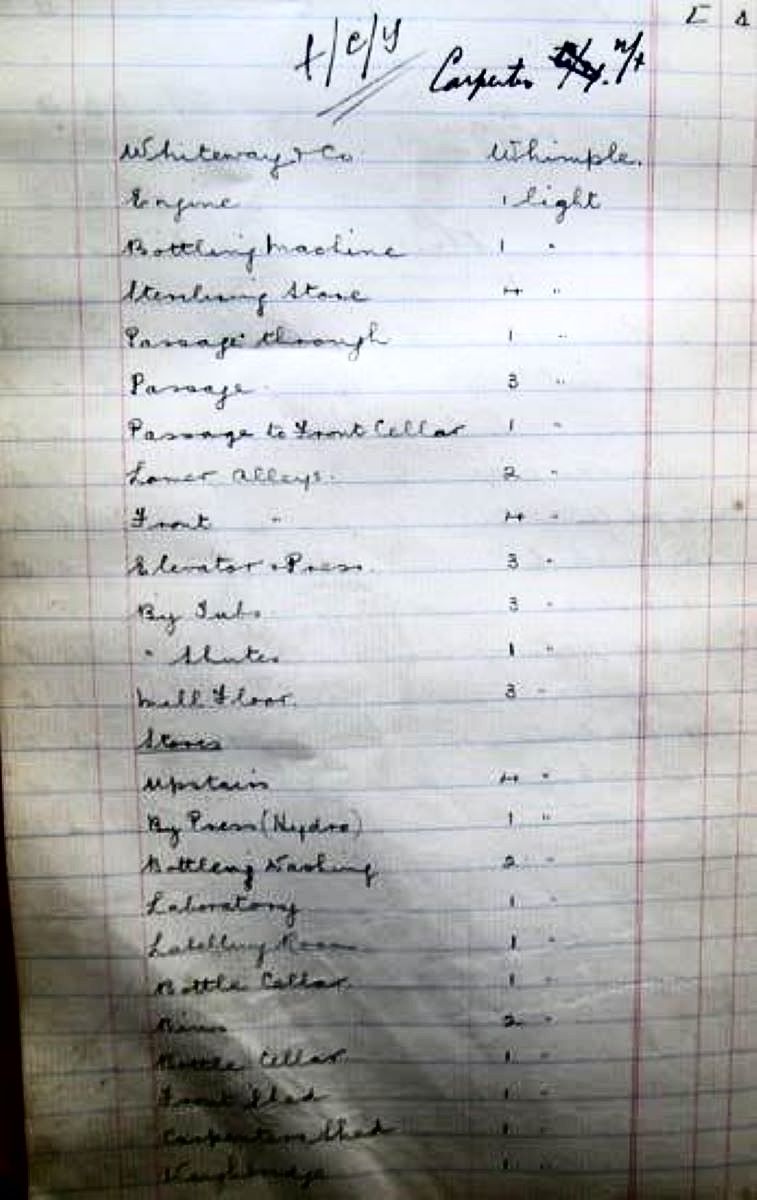 t/e/y Carpenter n/t
Whiteway & Co Whimple.
Engine 1 light
Bottling Machine 1 "
Sterilising Store 4 "
Passage through 1 "
Passage 3 "
Passage to Front Cellar 1 "
Lower Alleys. 2 "
Front " 4 "
Elevator & Press. 3 "
By Tubs 3 "
" Shutes 1 "
Mill Floor. 3 "
Stores
Upstairs 4 "
By Press (Hydro) 1 "
Bottling Washing 2 "
Laboratory 1 "
Labelling Room 1 "
Bottle Cellar 1 "
Bins 2 "
Bottle Cellar 1 "
Front Shed 1 "
Carpenters Shed 1 "
Weighbridge 1 "